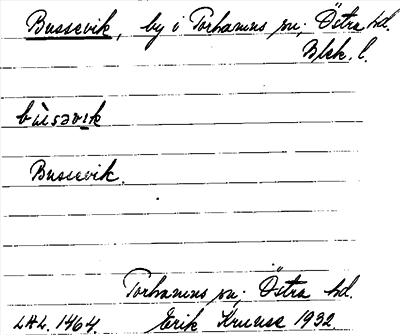 Bussevik, by i Torhamns sn; Östra hd.
Blek. l.
bùsəvik
Bussevik.
Torhamns sn; Östra hd.
LAL. 1464. Erik Kruuse 1932.